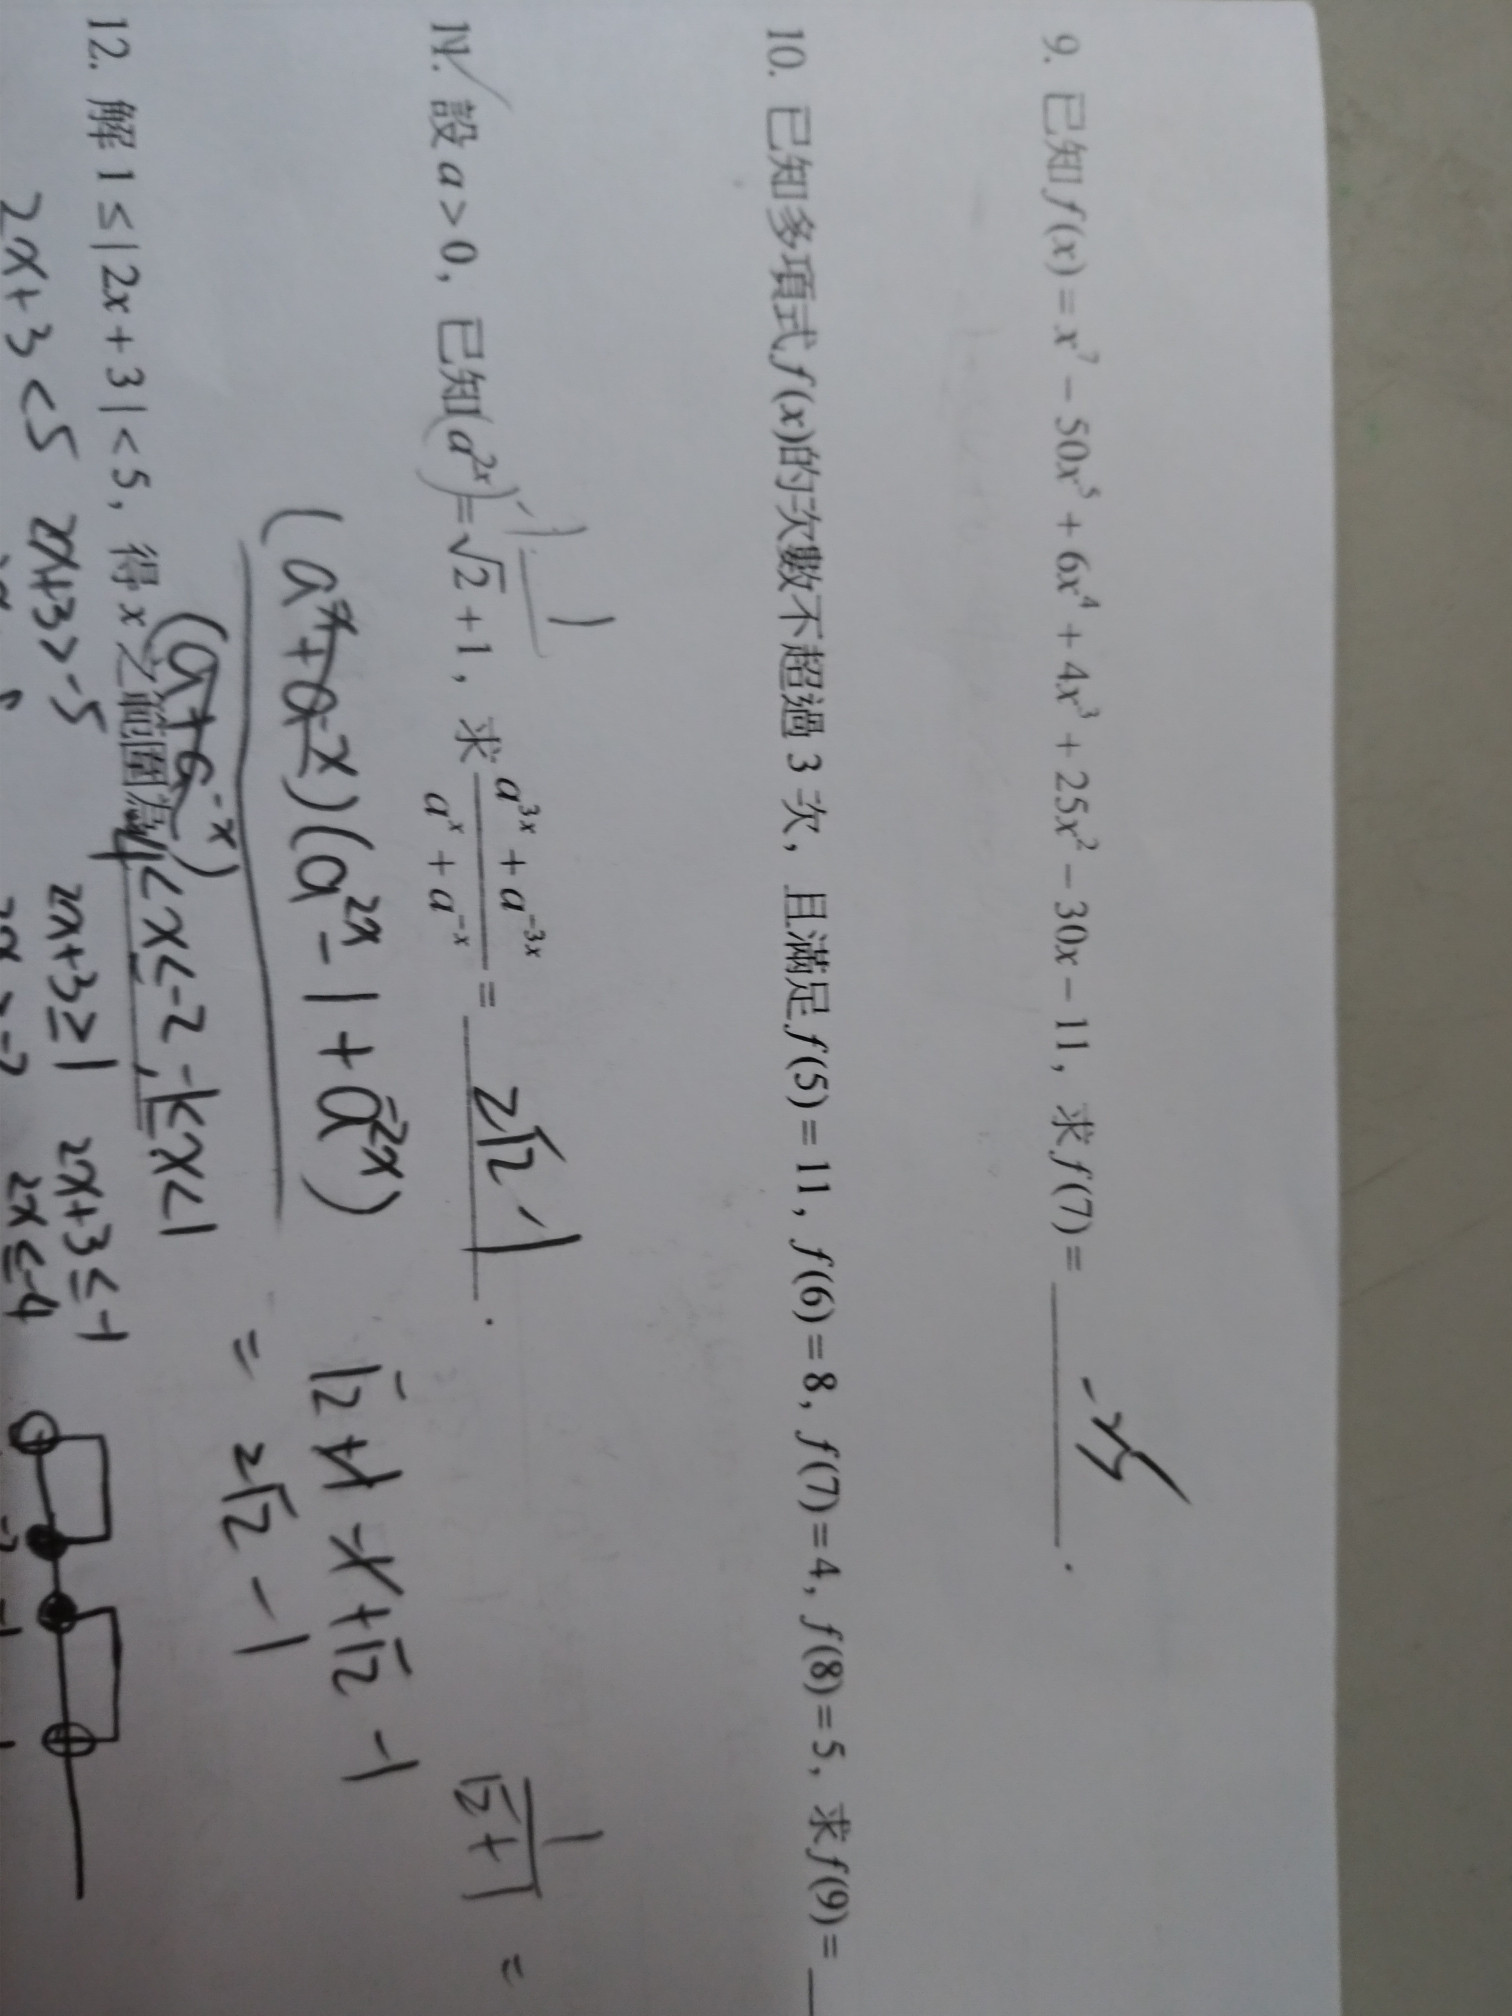 9. 已知 f(x) = x⁷ − 50x⁵ + 6x⁴ + 4x³ + 25x² − 30x − 11，求 f(7) =
10. 已知多項式 f(x)的次數不超過 3 次，且滿足 f(5) = 11，f(6) = 8，f(7) = 4，f(8) = 5，求 f(9) =
11. 設 a > 0，已知(a²ˣ)⁻¹ = √2 + 1，求 (a³ˣ + a⁻³ˣ)/(aˣ + a⁻ˣ) = 2√2 - 1 .
1/(√2+1) =
(aˣ+a⁻ˣ)(a²ˣ-1+a⁻²ˣ)
(aˣ+a⁻ˣ)
√2+1-1+√2-1
= 2√2-1
12. 解 1 ≤ | 2x + 3 | < 5，得 x 之範圍為 -4<x≤-2, -1≤x<1
2x+3<5 2x+3>-5 2x+3≥1 2x+3≤-1
2x≥-2 2x≤-4